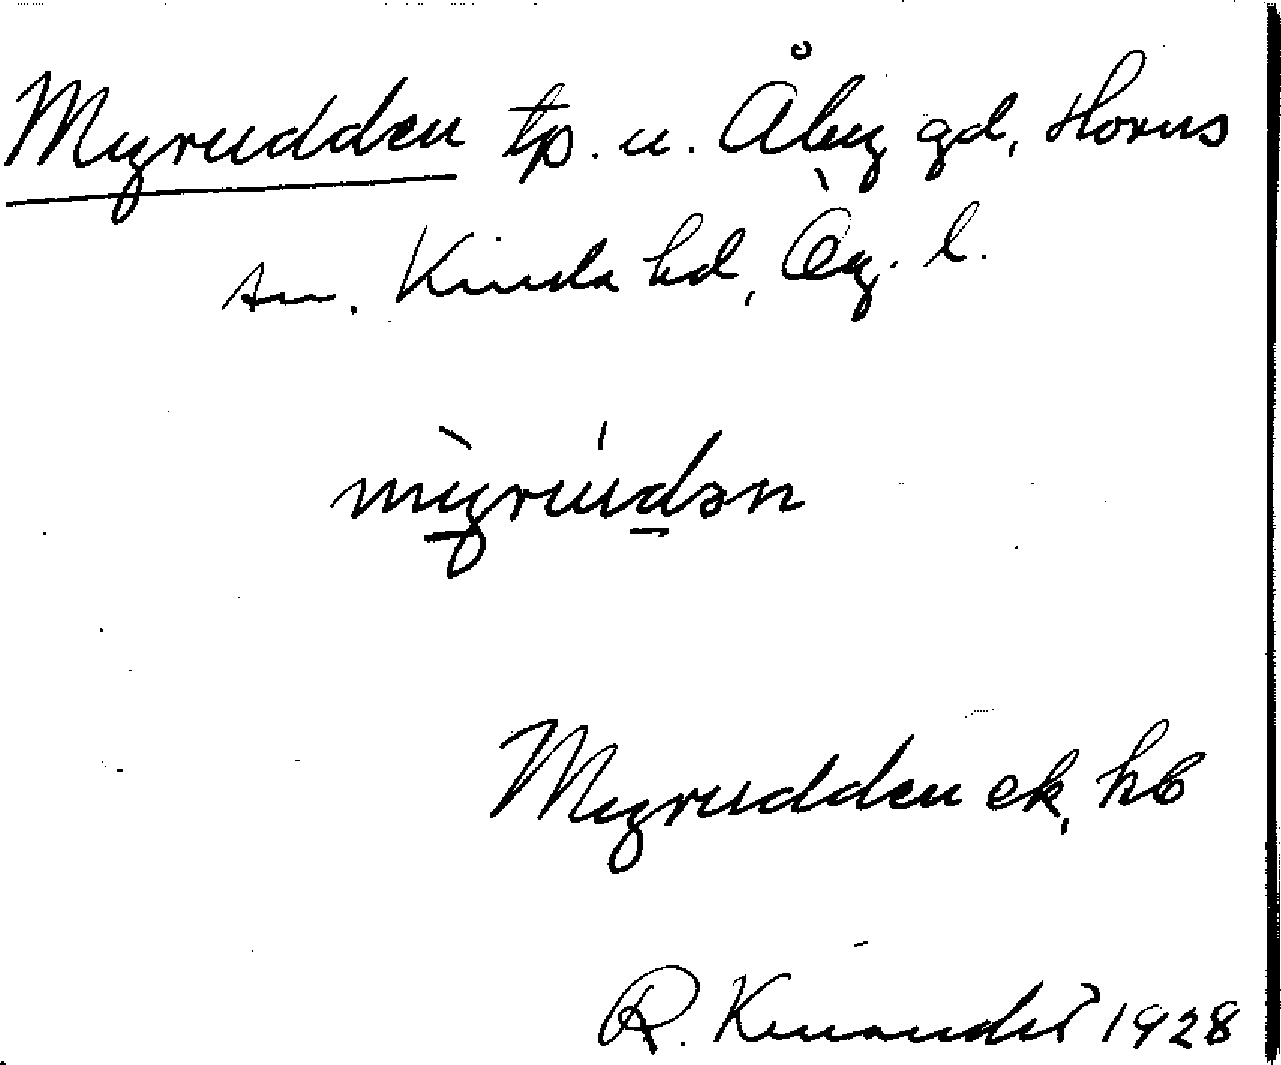 Myrudden tp. u. Åby gd, Horns
sn. Kinda hd, Ög. l.
mỳrúdən
Myrudden ek, hb
R. Kinander 1928